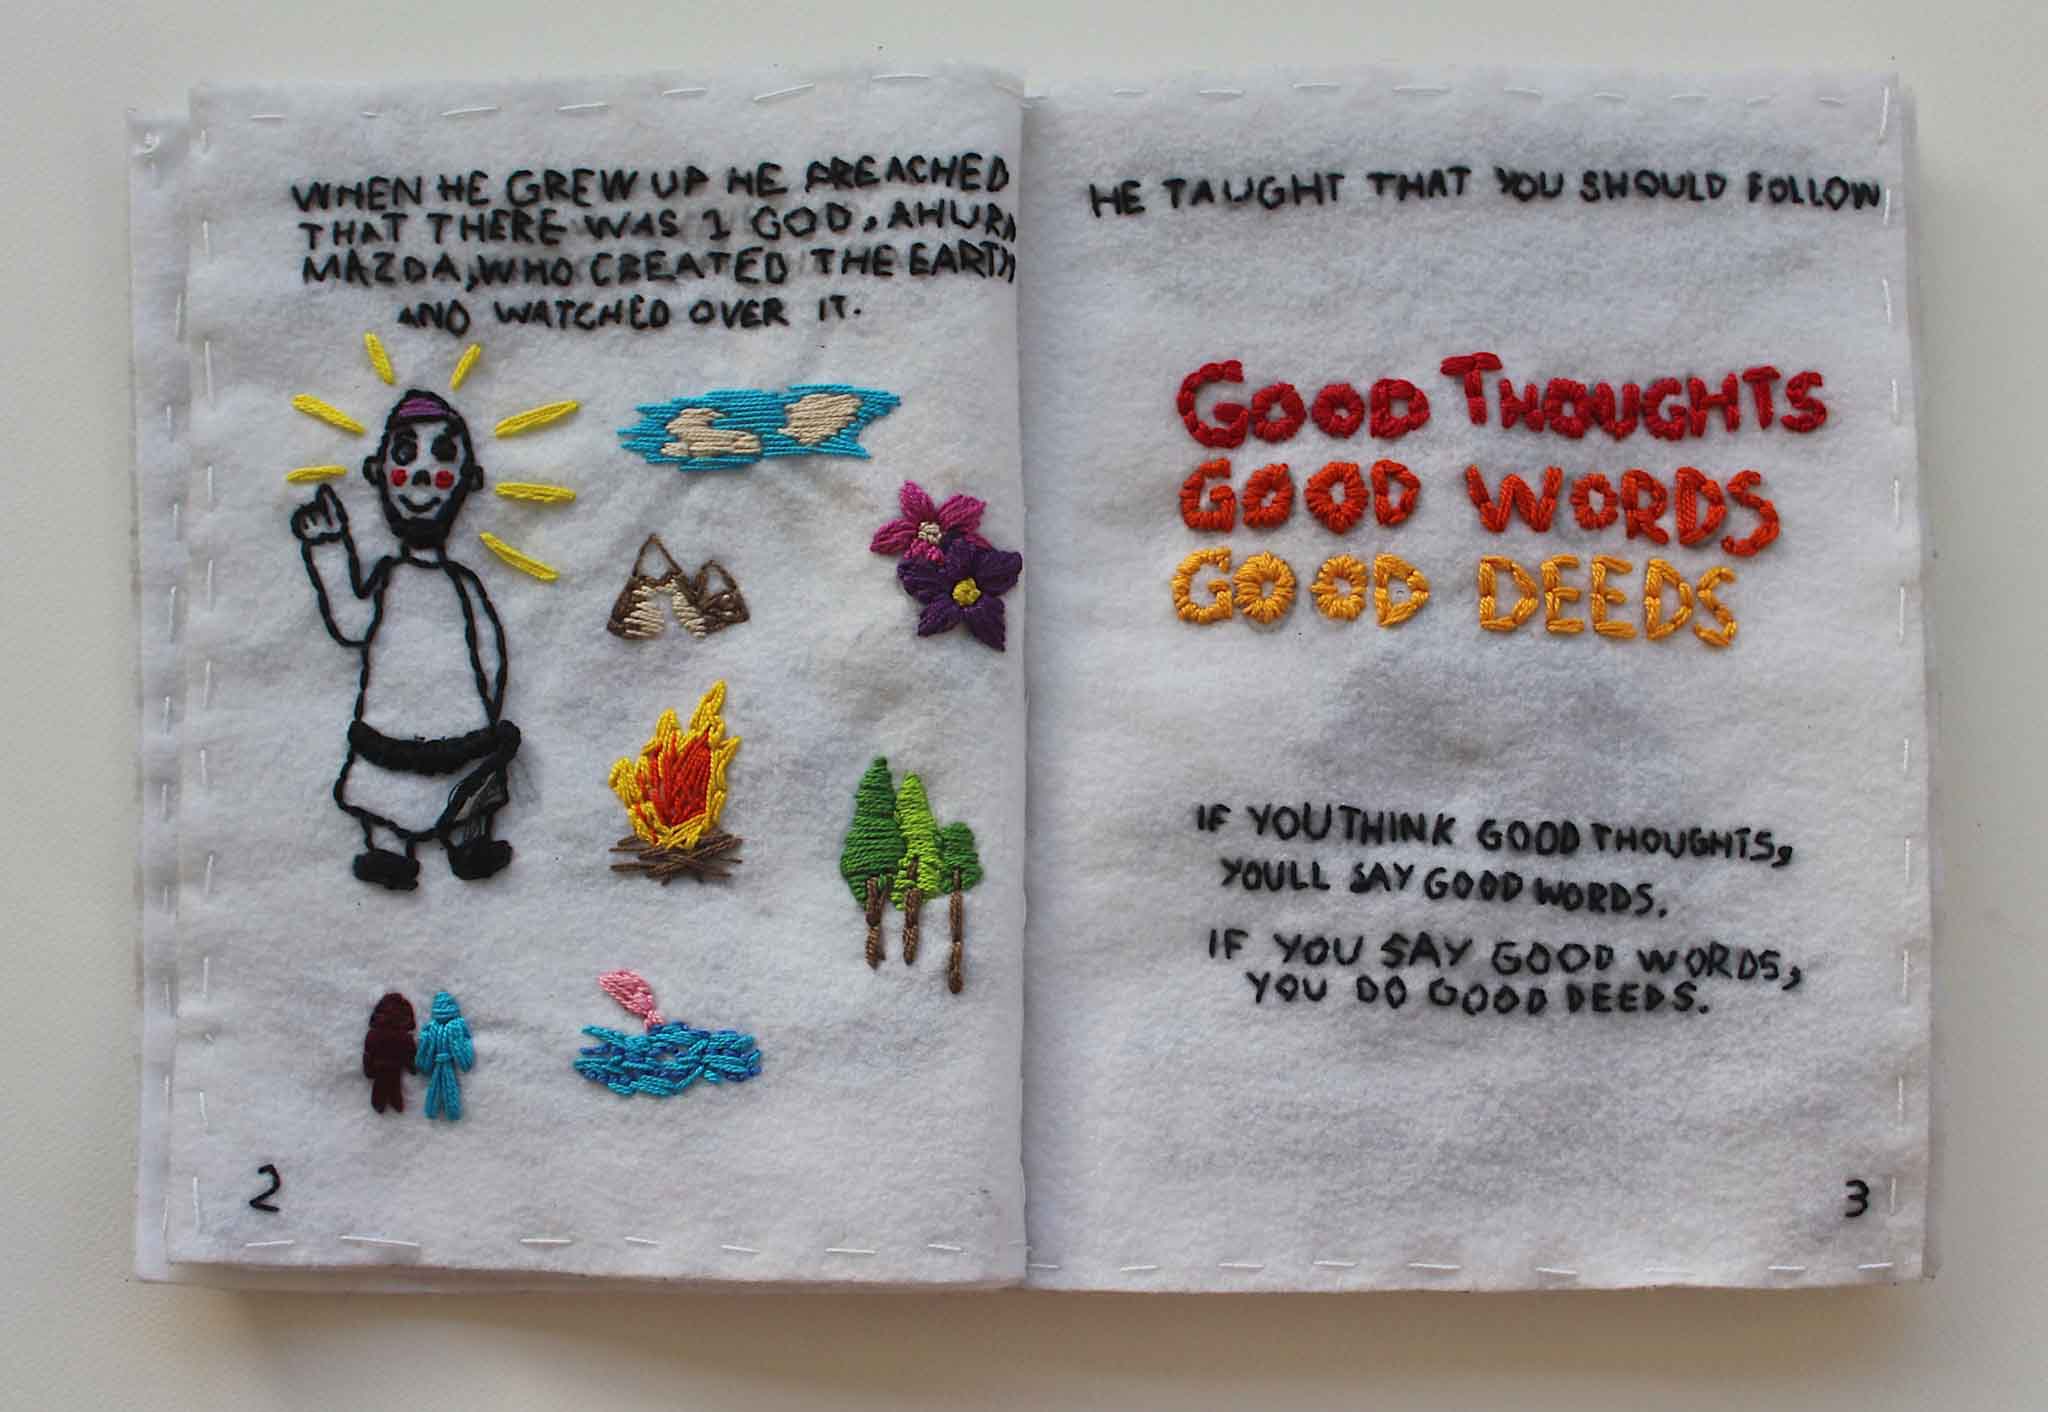 WHEN HE GREW UP HE PREACHED
THAT THERE WAS 1 GOD, AHURA
MAZDA, WHO CREATED THE EARTH
AND WATCHED OVER IT.
2
HE TAUGHT THAT YOU SHOULD FOLLOW
GOOD THOUGHTS
GOOD WORDS
GOOD DEEDS
IF YOU THINK GOOD THOUGHTS,
YOULL SAY GOOD WORDS.
IF YOU SAY GOOD WORDS,
YOU DO GOOD DEEDS.
3